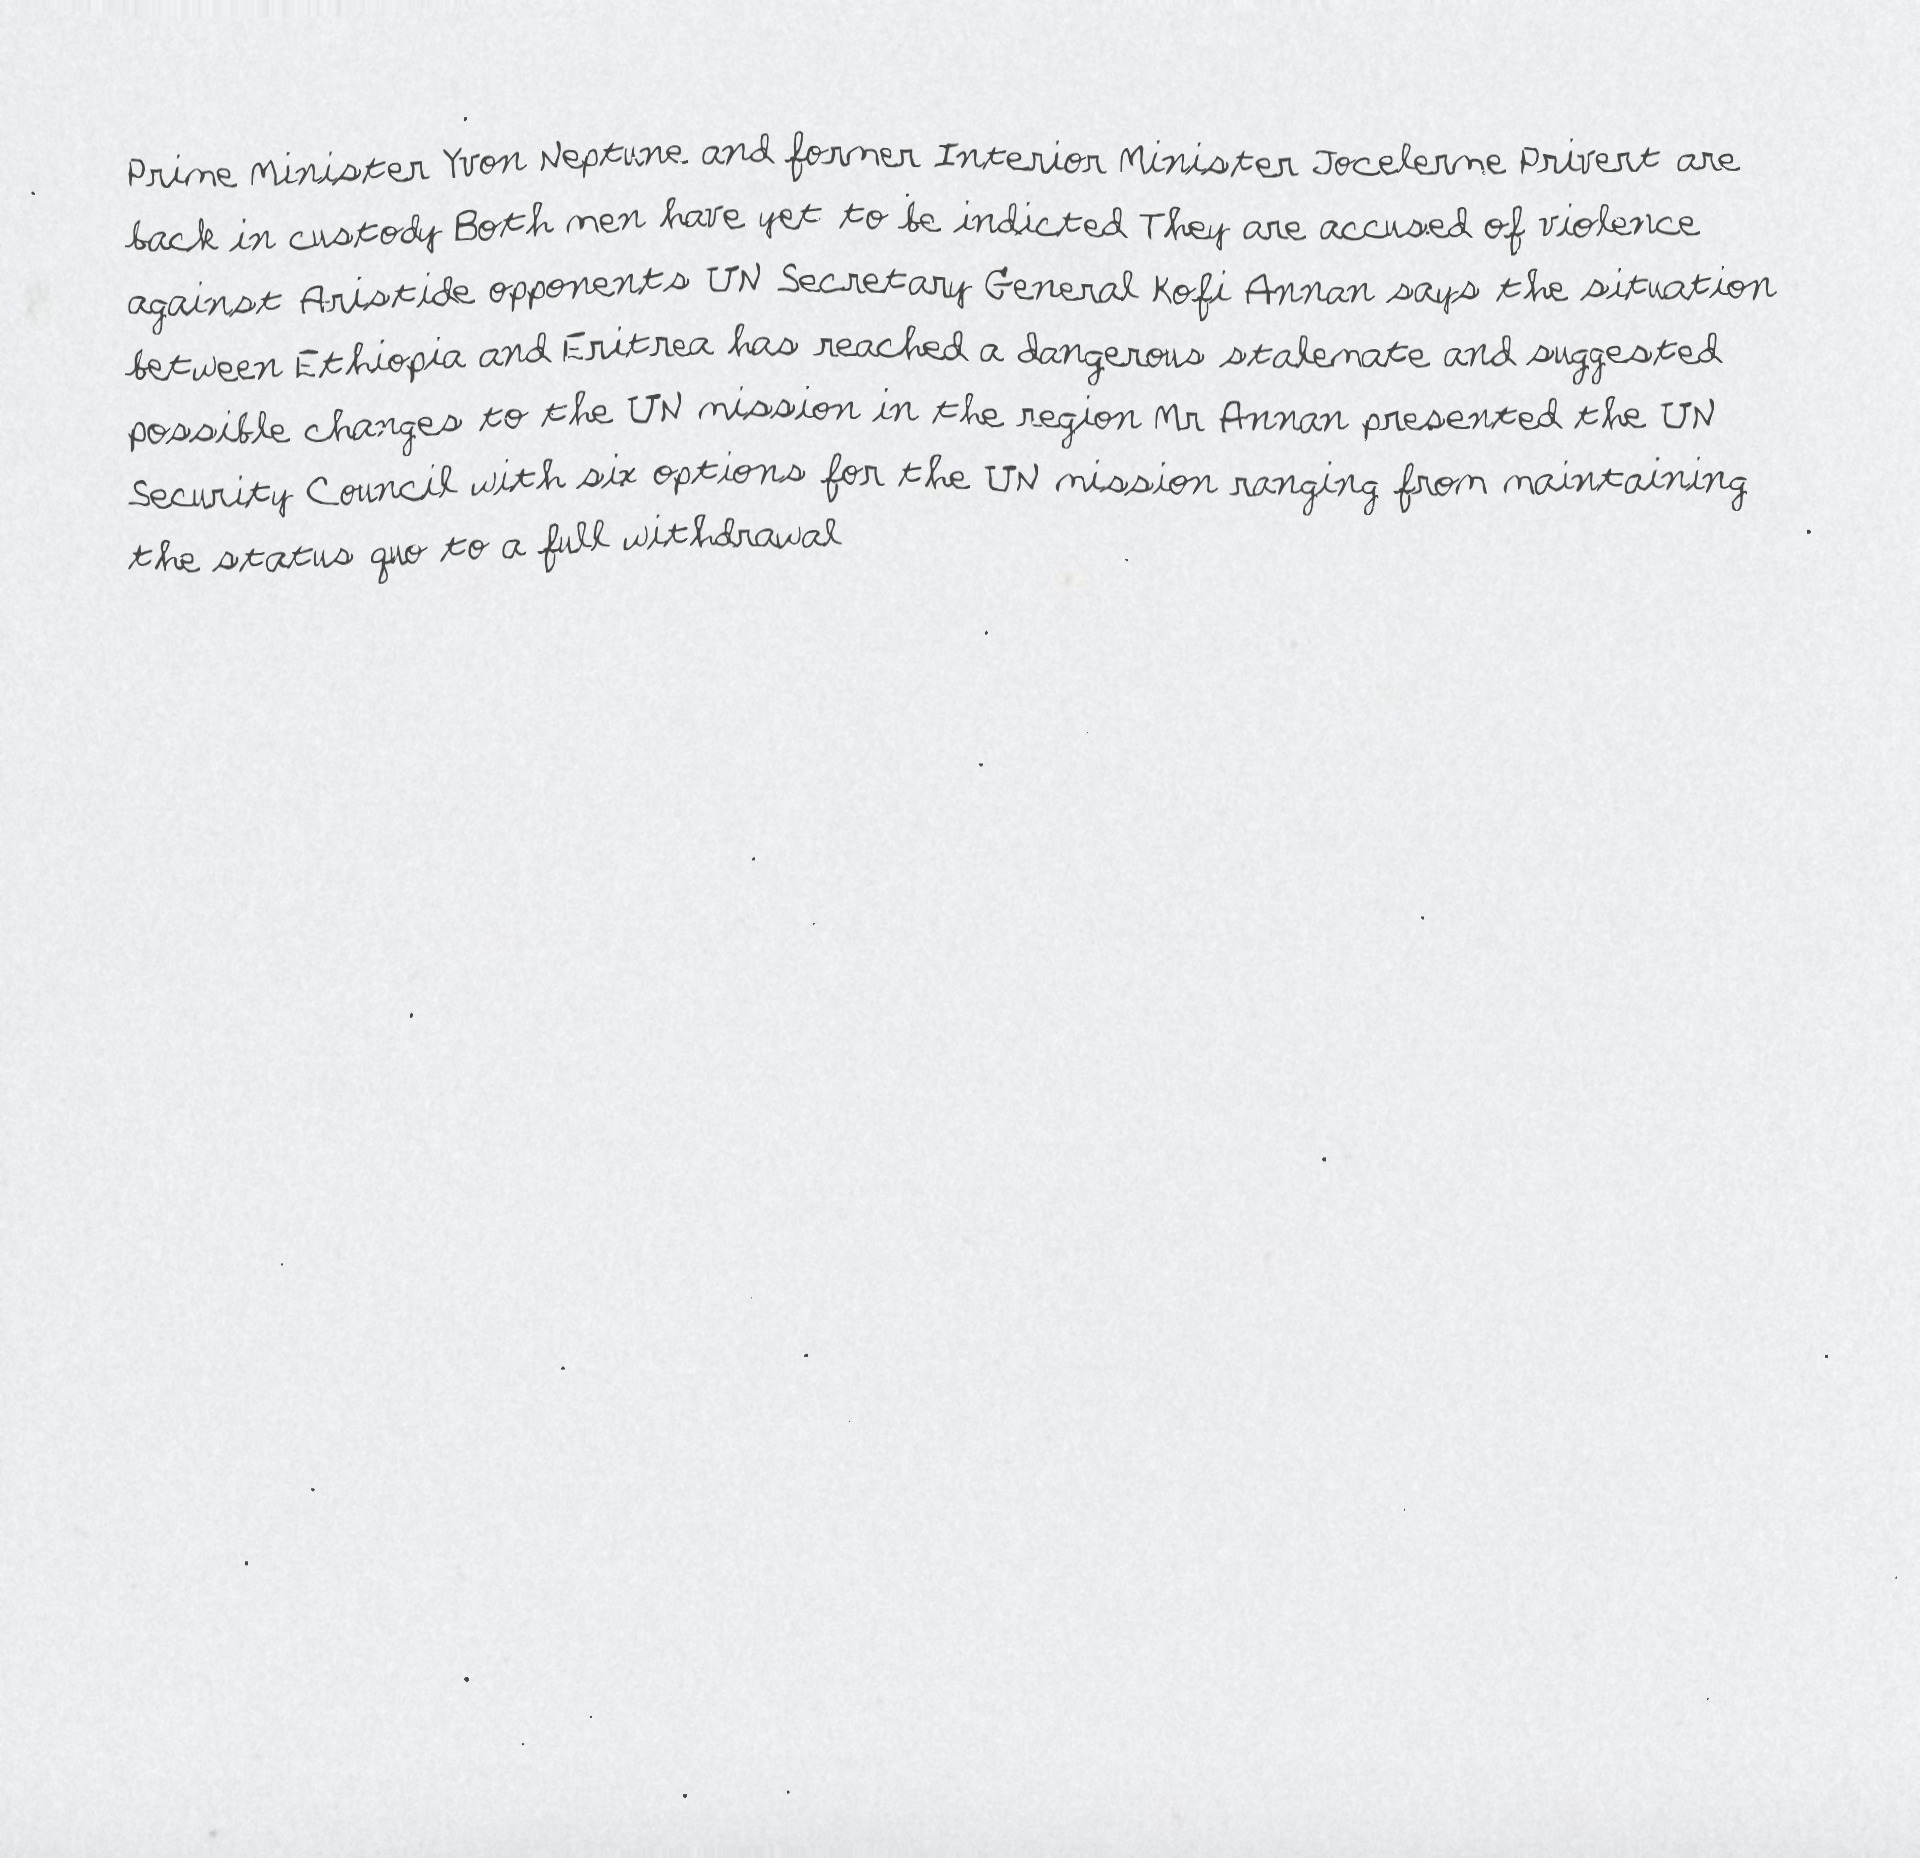 Prime Minister Yvon Neptune and former Interior Minister Jocelerme Privert are
back in custody Both men have yet to be indicted They are accused of violence
against Aristide opponents UN Secretary General Kofi Annan says the situation
between Ethiopia and Eritrea has reached a dangerous stalemate and suggested
possible changes to the UN mission in the region Mr Annan presented the UN
Security Council with six options for the UN mission ranging from maintaining
the status quo to a full withdrawal